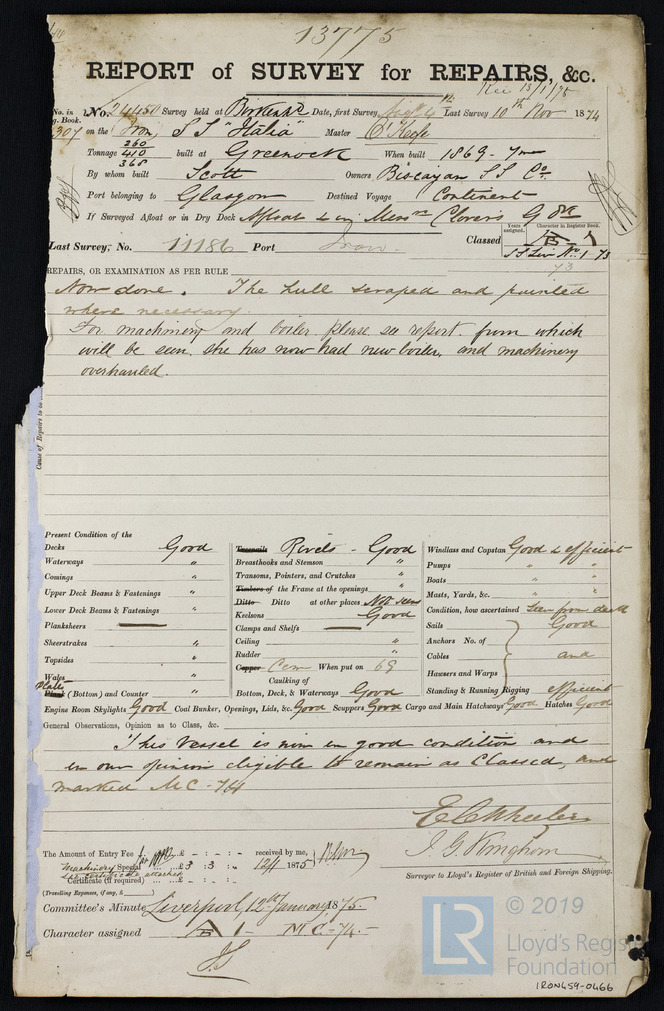 13775
REPORT of SURVEY for REPAIRS, &c.
Rec 13/1/75
No. in Reg. Book. No. 24450 Survey held at Birkenhd Date, first Survey Augt 4th Last Survey 10th Nov 1874
307 on the (Iron) S S "Italia" Master O'Keefe
Tonnage 260 410 368 built at Greenock When built 1869 - 7mo
By whom built Scott Owners Biscayan S S Co.
Port belonging to Glasgow Destined Voyage Continent
If Surveyed Afloat or in Dry Dock Afloat & in Messrs Clovers G Dk
Years assigned. Character in Register Book.
Last Survey, No. 11186 Port Iron. Classed A 1
S S Liv No. 1-73
73
REPAIRS, OR EXAMINATION AS PER RULE
Now done. The hull scraped and painted
where necessary.
For machinery and boiler please see report. from which
will be seen, she has now had new boiler, and machinery
overhauled.
Cause of Repairs to be
Present Condition of the
Decks Good
Waterways "
Comings "
Upper Deck Beams & Fastenings "
Lower Deck Beams & Fastenings "
Planksheers
Sheerstrakes "
Topsides "
Wales "
Plate Plank (Bottom) and Counter "
Treenails Rivets - Good
Breasthooks and Stemson "
Transoms, Pointers, and Crutches "
Timbers of the Frame at the openings "
Ditto Ditto at other places Not seen
Keelsons Good
Clamps and Shelfs
Ceiling "
Rudder "
Copper Cem When put on 69
Caulking of
Bottom, Deck, & Waterways Good
Windlass and Capstan Good & efficient
Pumps " "
Boats " "
Masts, Yards, &c. " "
Condition, how ascertained Seen from deck
Sails Good
Anchors No. of
Cables and
Hawsers and Warps
Standing & Running Rigging efficient
Engine Room Skylights Good Coal Bunker, Openings, Lids, &c. Good Scuppers Good Cargo and Main Hatchways Good Hatches Good
General Observations, Opinion as to Class, &c.
This Vessel is now in good condition and
in our opinion eligible to remain as Classed, and
marked MC-74
E C Wheeler
J. G. Kinghorn
Surveyor to Lloyd's Register of British and Foreign Shipping.
The Amount of Entry Fee £ : : received by me,
Machinery Special £ 3 : 3 : " 12/1 1875
See Certificate attached
Certificate (if required) £ : :
(Travelling Expenses, if any, £ )
Committee's Minute Liverpool, 12th January 1875.
Character assigned A 1 MC-74.
J.S
LR © 2019
Lloyd's Register
Foundation
IRON459-0466